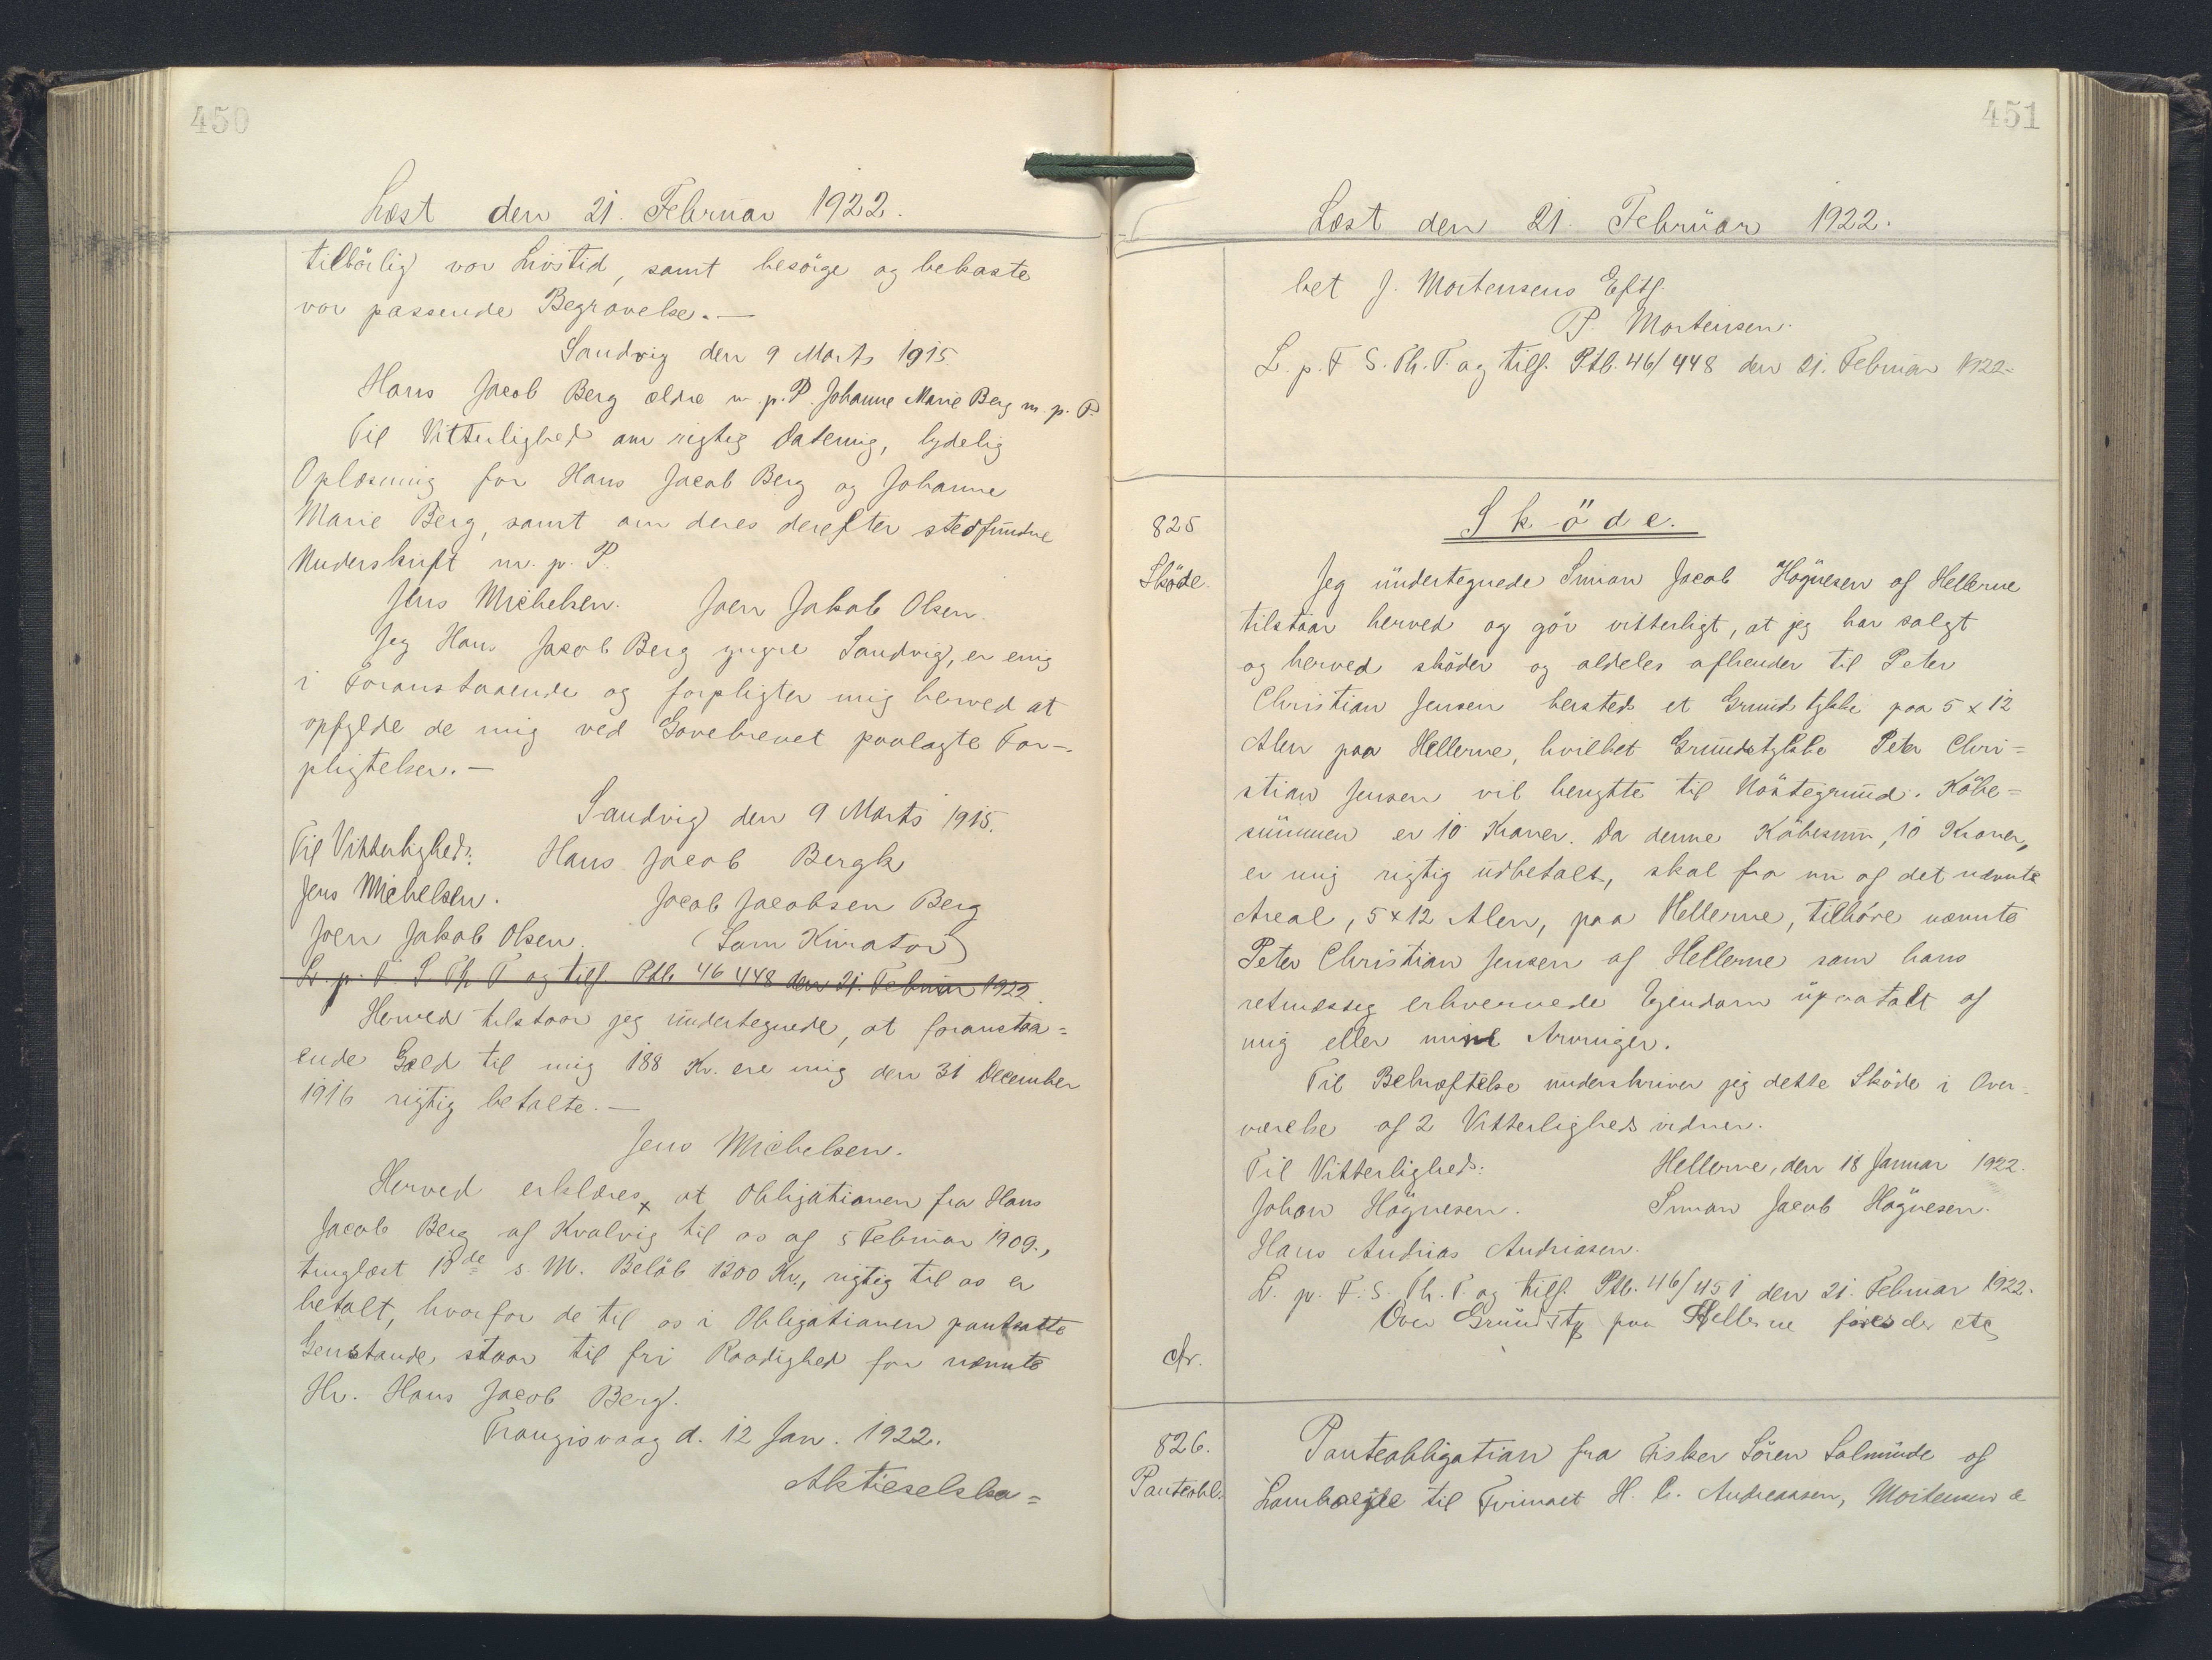 450
Læst den 21. Februar 1922.
tilbörlig vor Livstid, samt besörge og bekoste
vor passende Begravelse.—
Sandvig den 9 Marts 1915
Hans Jacob Berg ældre m. p. P. Johanne Marie Berg m. p. P
Til Vitterlighed om rigtig Datering, lydelig
Oplæsning for Hans Jacob Berg og Johanne
Marie Berg, samt om deres derefter stedfundne
Underskrift m. p. P.
Jens Michelsen. Joen Jakob Olsen.
Jeg Hans Jacob Berg yngre Sandvig, er enig
i Foranstaaende og forpligter mig herved at
opfylde de mig ved Gavebrevet paalagte For-
pligtelser.—
Sandvig den 9 Marts 1915.
Til Vitterlighed: Hans Jacob Bergh
Jens Michelsen. Jacob Jacobsen Berg
Joen Jakob Olsen. (Som Kurator)
L. p. F. S. Th. T og tilf. Ptb. 46 448 den 21. Februar 1922.
Herved tilstaar jeg undertegnede, at foranstaa=
ende Gæld til mig 188 Kr. ere mig den 31 December
1916 rigtig betalte.—
Jens Michelsen.
Herved erklæres x at Obligationen fra Hans
Jacob Berg af Kvalvig til os af 5 Februar 1909.,
tinglæst 15de s. M. Belöb 1200 Kr., rigtig til os er
betalt, hvorfor de til os i Obligationen pantsatte
Genstande, staar til fri Raadighed for nævnte
Hr. Hans Jacob Berg.
Trangisvaag d. 12 Jan. 1922.
Aktieselska=
451
Læst den 21. Februar 1922.
bet J. Mortensens Eftf.
P. Mortensen.
L. p. F S. Th. T. og tilf. Ptb. 46/448 den 21. Februar 1922.
825
Sköde.
Sköde.
Jeg undertegnede Simon Jacob Högnesen af Hellerne
tilstaar herved og gör vitterligt, at jeg har solgt
og herved sköder og aldeles afhender til Peter
Christian Jensen hersteds et Grundstykke paa 5 x 12
Alen paa Hellerne, hvilket Grundstykke Peter Chri=
stian Jensen vil benytte til Nöstegrund. Köbe=
summen er 10 Kroner. Da denne Köbesum, 10 Kroner,
er mig rigtig udbetalt, skal fra nu af det nævnte
Areal, 5 x 12 Alen, paa Hellerne, tilhöre nævnte
Peter Christian Jensen af Hellerne som hans
retmæssig erhvervede Ejendom upaatalt af
mig eller mine Arvinger.
Til Bekræftelse underskriver jeg dette Sköde i Over-
værelse af 2 Vitterligheds vidner.
Til Vitterlighed: Hellerne, den 18 Januar 1922.
Johan Högnesen. Simon Jacob Högnesen.
Hans Andrias Andriasen.
L. p. F. S. Th. T. og tilf. Ptb. 46/451 den 21. Februar 1922.
Over Grundst paa Hellerne
cfr.
826.
Panteobl.
Panteobligation fra Fisker Sören Salmunde af
Lamhaejde til Firmaet H. C. Andreassen, Mortensen &